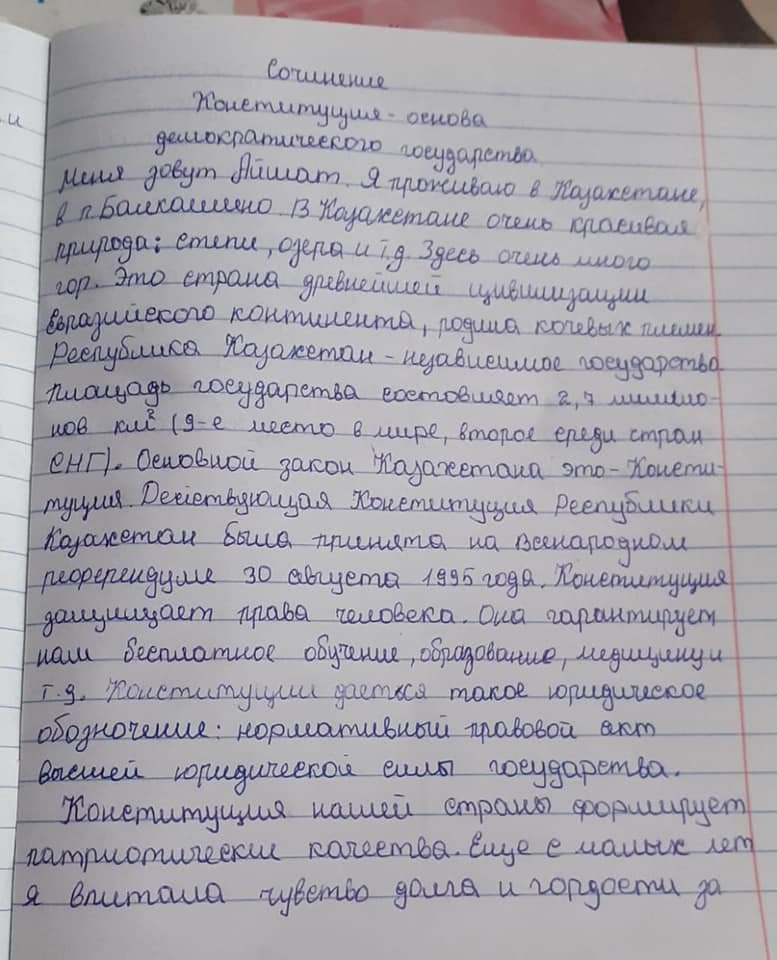 Сочинение
Конституция - основа
демократического государства
Меня зовут Айшат. Я проживаю в Казахстане,
в п. Балкашино. В Казахстане очень красивая
природа: степи, озера и т.д. Здесь очень много
гор. Это страна древнейшей цивилизации
Евразийского континента, родина кочевых племен.
Республика Казахстан - независимое государства.
Площадь государства состовляет 2,7 миллио-
нов км² (9-е место в мире, второе среди стран
СНГ). Основной закон Казахстана это - Консти-
туция. Действующая Конституция Республики
Казахстан была принята на Всенародном
референдуме 30 августа 1995 года. Конституция
защищает права человека. Она гарантирует
нам бесплатное обучение, образование, медицину и
т.д. Конституции даеться такое юридическое
обозночение: нормативный правовой акт
высшей юридической силы государства.
Конституция нашей страны формирует
патриотические качества. Еще с малых лет
я впитала чувство долга и гордости за